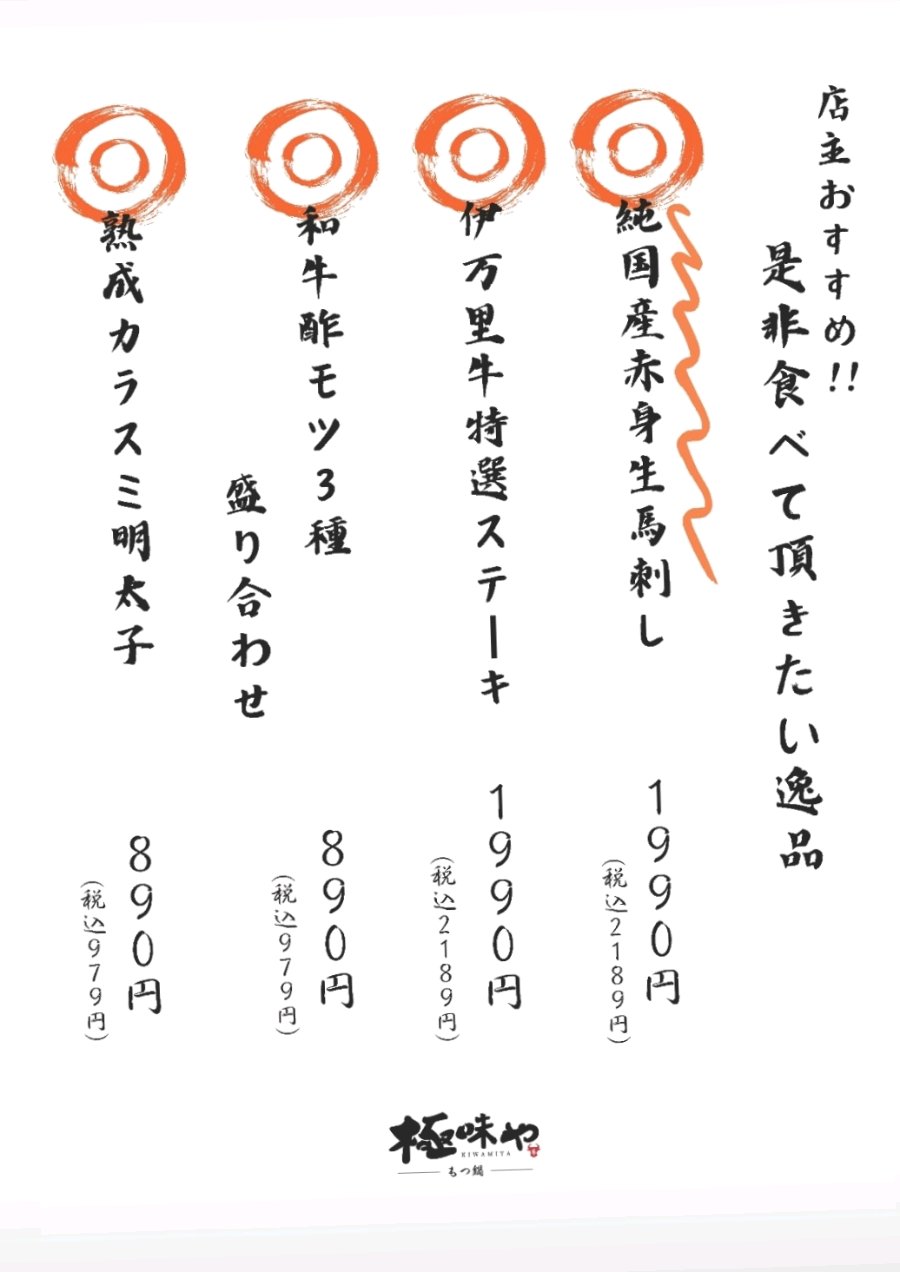 店主おすすめ!!
是非食べて頂きたい逸品
純国産赤身生馬刺し
1990円
(税込2189円)
伊万里牛特選ステーキ
1990円
(税込2189円)
和牛酢モツ3種
盛り合わせ
890円
(税込979円)
熟成カラスミ明太子
890円
(税込979円)
極味や
KIWAMIYA
もつ鍋